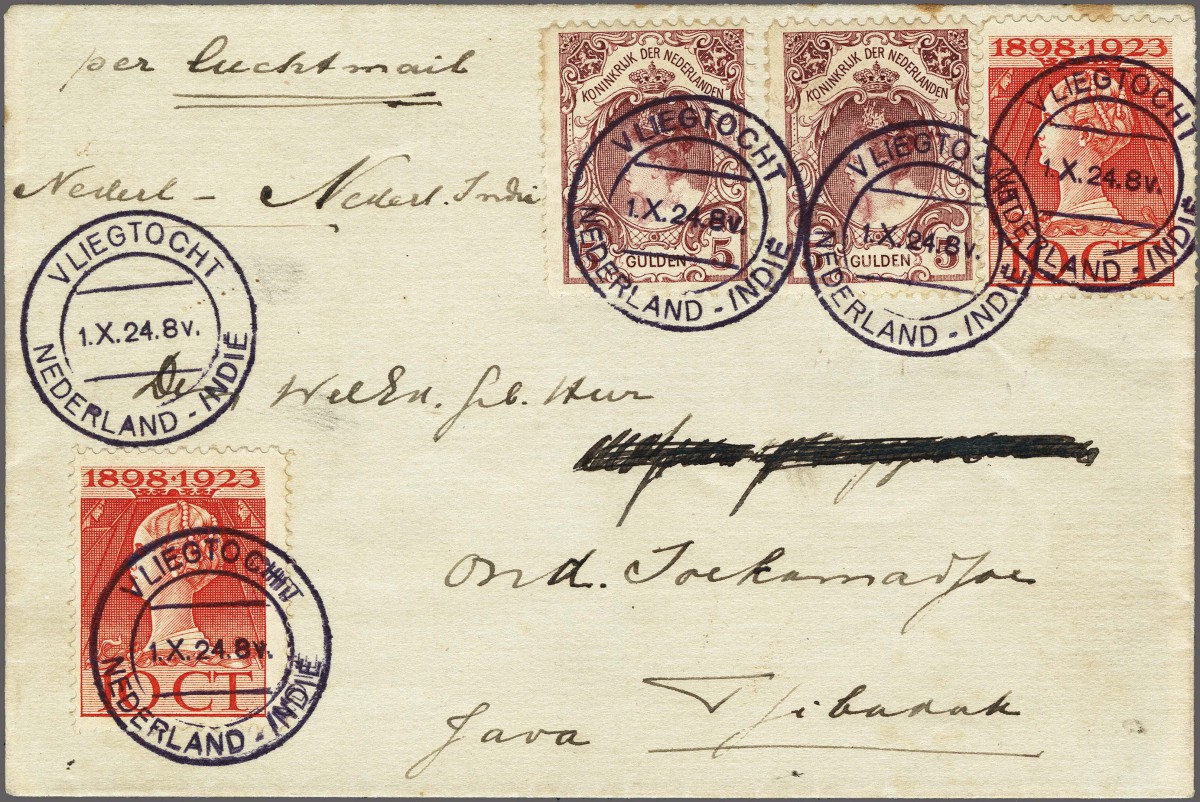 per luchtmail
Nederl - Nederl. Indie
KONINKRIJK DER NEDERLANDEN
5 GULDEN 5
KONINKRIJK DER NEDERLANDEN
5 GULDEN 5
1898·1923
10 CT
VLIEGTOCHT
1.X.24.8v.
NEDERLAND - INDIË
VLIEGTOCHT
1.X.24.8v.
NEDERLAND - INDIË
VLIEGTOCHT
1.X.24.8v.
NEDERLAND - INDIË
VLIEGTOCHT
1.X.24.8v.
NEDERLAND - INDIË
Den WelEd. Geb. Heer
Ond. Soekamadjoe
Tjibadak
Java
1898·1923
10 CT
VLIEGTOCHT
1.X.24.8v.
NEDERLAND - INDIË